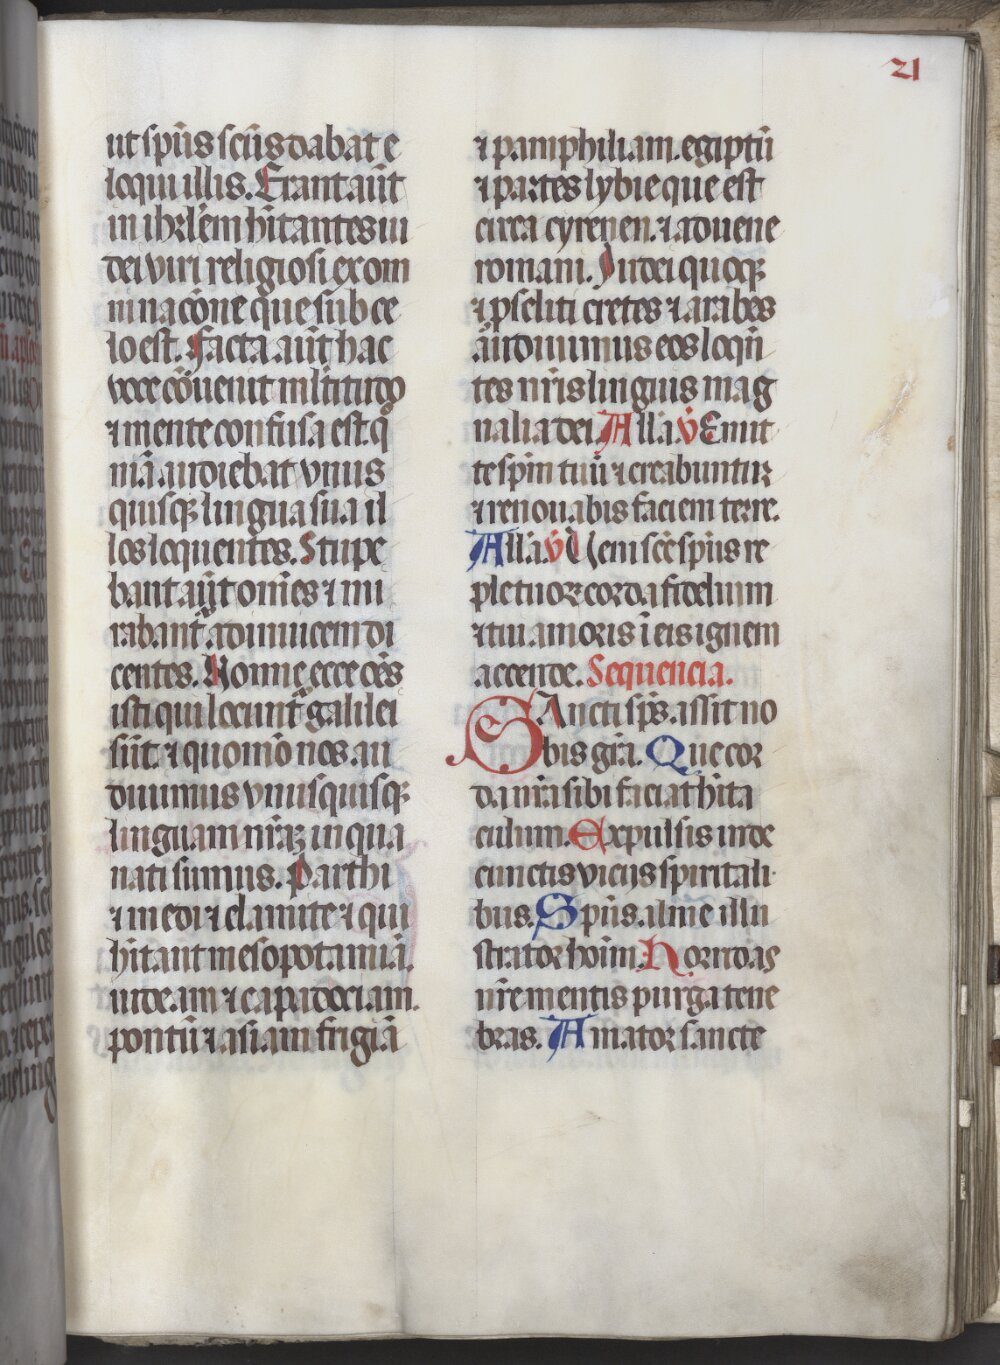 21
ut sp̄us sc̄us dabat e
loqui illis. Erant aūt
in ihrl̄em hītantes iu
dei viri religiosi ex om
ni nac̄one que sub ce
lo est. Facta aūt hac
voce cōuenit ml̄titudo
⁊ mente confusa est. q̄
niā audiebat vnus
quisqꝫ lingua sua il
los loquentes. Stupe
bant aūt om̄es ⁊ mi
rabant̄ adinuicem di
centes. Nonne ecce oēs
isti qui locunt̄ galilei
sūt ⁊ quomō nos au
diuimus vnusquisqꝫ
linguam nr̄aꝫ in qua
nati sumus. Parthi
⁊ medi ⁊ elamite ⁊ qui
hītant mesopotamiā.
iudeam ⁊ capadociam.
pontū ⁊ asiam frigiā
⁊ pamphiliam. egiptū
⁊ partes lybie que est
circa cyrenen. ⁊ aduene
romani. Iudei quoqꝫ
⁊ pseliti cretes ⁊ arabes
audiuimus eos loqn̄
tes nr̄is linguis mag
nalia dei. Allā. v̄ Emit
te sp̄m tuū ⁊ creabuntur
⁊ renouabis faciem terre.
Allā. v̄ Veni sc̄e sp̄us re
ple tuoꝝ corda fidelium
⁊ tui amoris ī eis ignem
accende. Sequencia.
SAncti sp̄s assit no
bis gr̄a. Que cor
da nr̄a sibi faciat hīta
culum. Expulsis inde
cunctis vicijs spiritali
bus. Sp̄us alme illu
strator hoīm. Horridas
nr̄e mentis purga tene
bras. Amator sancte